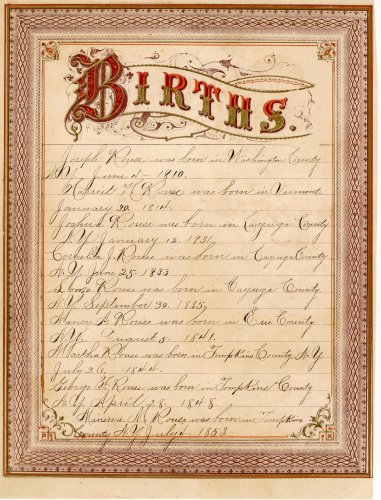 BIRTHS.
Joseph Rouse was born in Washington County
N.Y. June 4 - 1910.
Harriet H Rouse was born in Vermont
January 30 1814.
Joshua Rouse was born in Cayuga County
N.Y January 12. 1831,
Cornelia J. Rouse was born in Cayuga County
N.Y June 25 1833
Rouse was born in Cayuga County
N.Y September 30. 1835,
Nancy A. Rouse was born in Erie County
N.Y. August 5 1841.
Martha Rouse was born in Tompkins County N.Y
July 26, 1844.
George F. Rouse was born in Tompkins County
N.Y April 28, 1848
Minerva M Rouse was born in Tompkins
County N.Y July 4. 1853